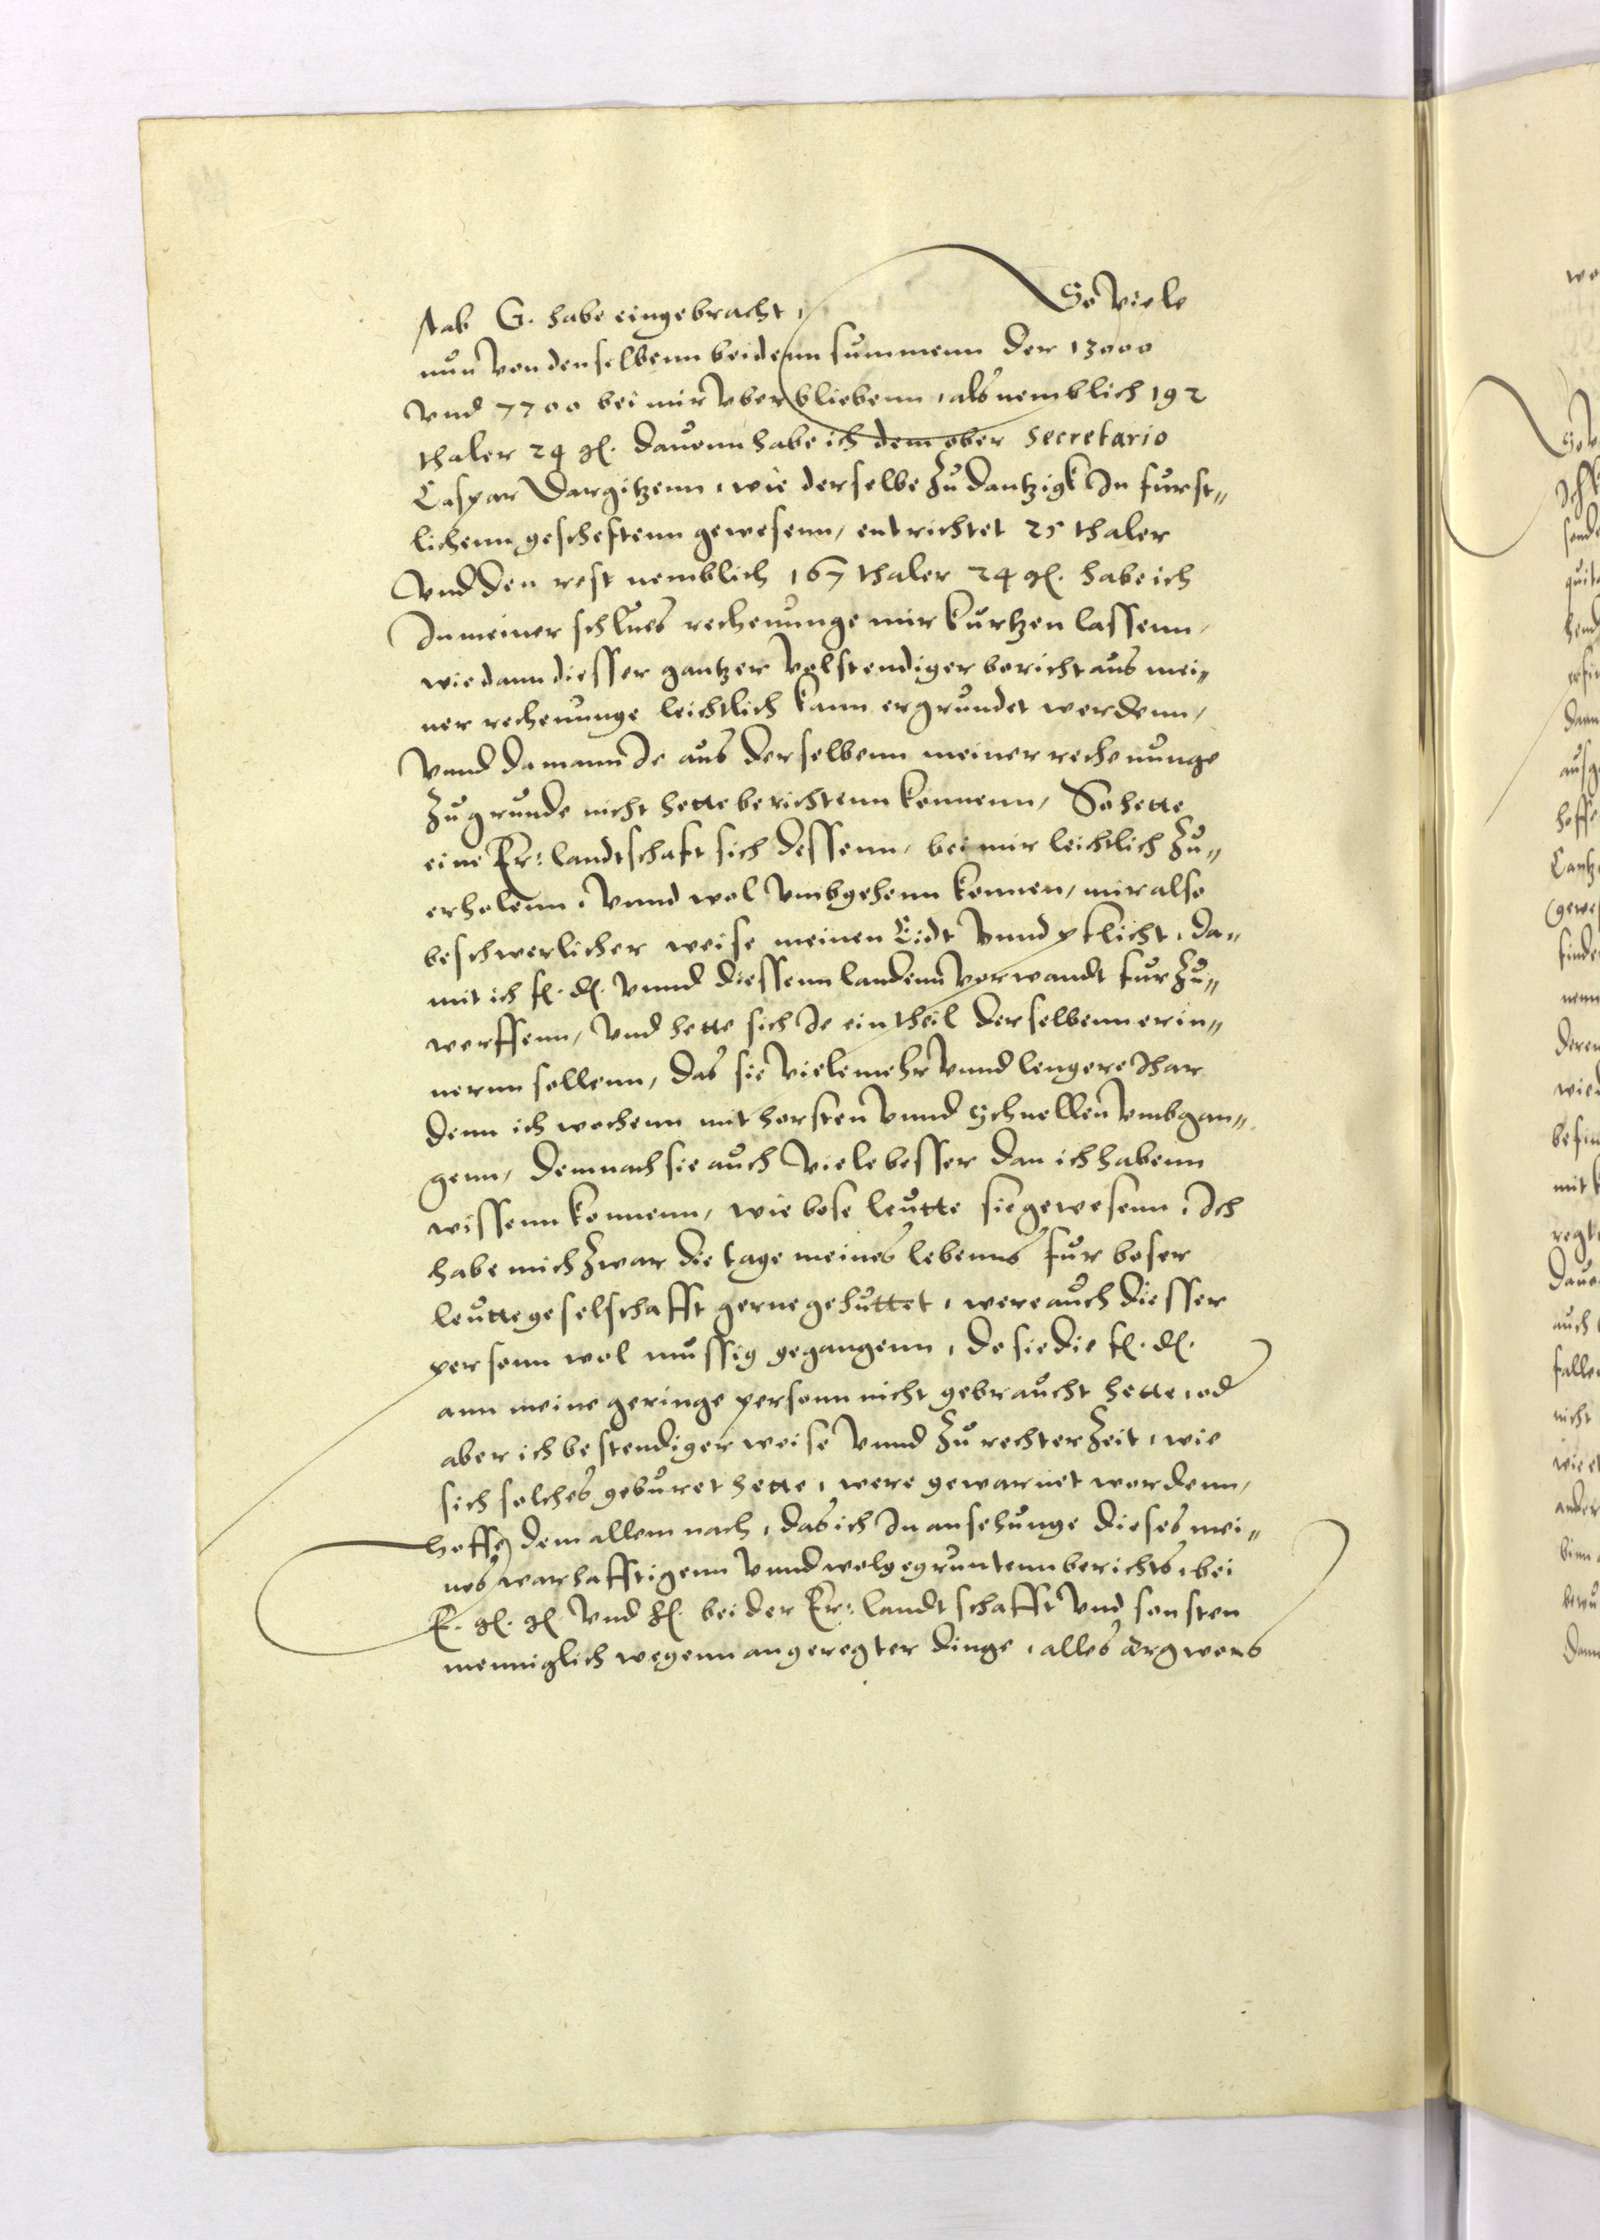 stab G. habe eingebracht, So viele
nun von denselbenn beidenn summenn der 13000
Vnd 7700 bei mir vberbliebenn, als nemblich 192
thaler 24 gl. dauonn habe ich dem ober Secretario
Caspar Dargitzenn, wie derselbe zu dantzigk In furst„
lichenn gescheftenn gewesenn, entrichtet 25 thaler
Vnd den rest nemblich 167 thaler 24 gl. habe ich
In meiner schlues rechenunge mir kurtzen lassenn,
wie dann diesser gantzer volstendiger bericht aus mei„
ner rechenunge leichtlich kann ergrundet werdenn,
Vnnd da mann Je aus derselbenn meiner rechenunge
zu grunde nicht hette berichtenn konnenn, So hette
eine Er: landtschaft sich dessenn, bei mir leichtlich zu„
erholenn, Vnnd wol vmbgehenn konnen, mir also
beschwerlicher weise meinen Eidt vnnd pflicht, da„
mit ich fl. dl. vnnd diessenn landenn vorwandt fur zu„
werffenn, Vnd hette sich Je ein theil derselbenn erin„
nernn sollenn, das sie viele mehr vnnd lengere Jhar
denn ich wochenn mit horsten vnnd Schnellen vmbgan„
genn, demnach sie auch viele besser dan ich habenn
wissenn konnenn, wie bose leutte sie gewesenn, Ich
habe mich zwar die tage meines lebenns fur boser
leutte geselschafft gerne gehuttet, were auch diesser
personn wol mussig gegangenn, do sie die fl. dl.
ann meine geringe personn nicht gebraucht hette, od
aber ich bestendiger weise vnnd zu rechter zeit, wie
sich solches geburet hette, were gewarnet wordenn,
hoffe dem allem nach, das ich In ansehunge dieses mei„
nes warhafftigenn vnnd wolgegruntenn berichts, bei
E. gl. gl. vnd hl. bei der Er: landtschafft vnd sonsten
menniglich wegenn angeregter dinge, alles argwons